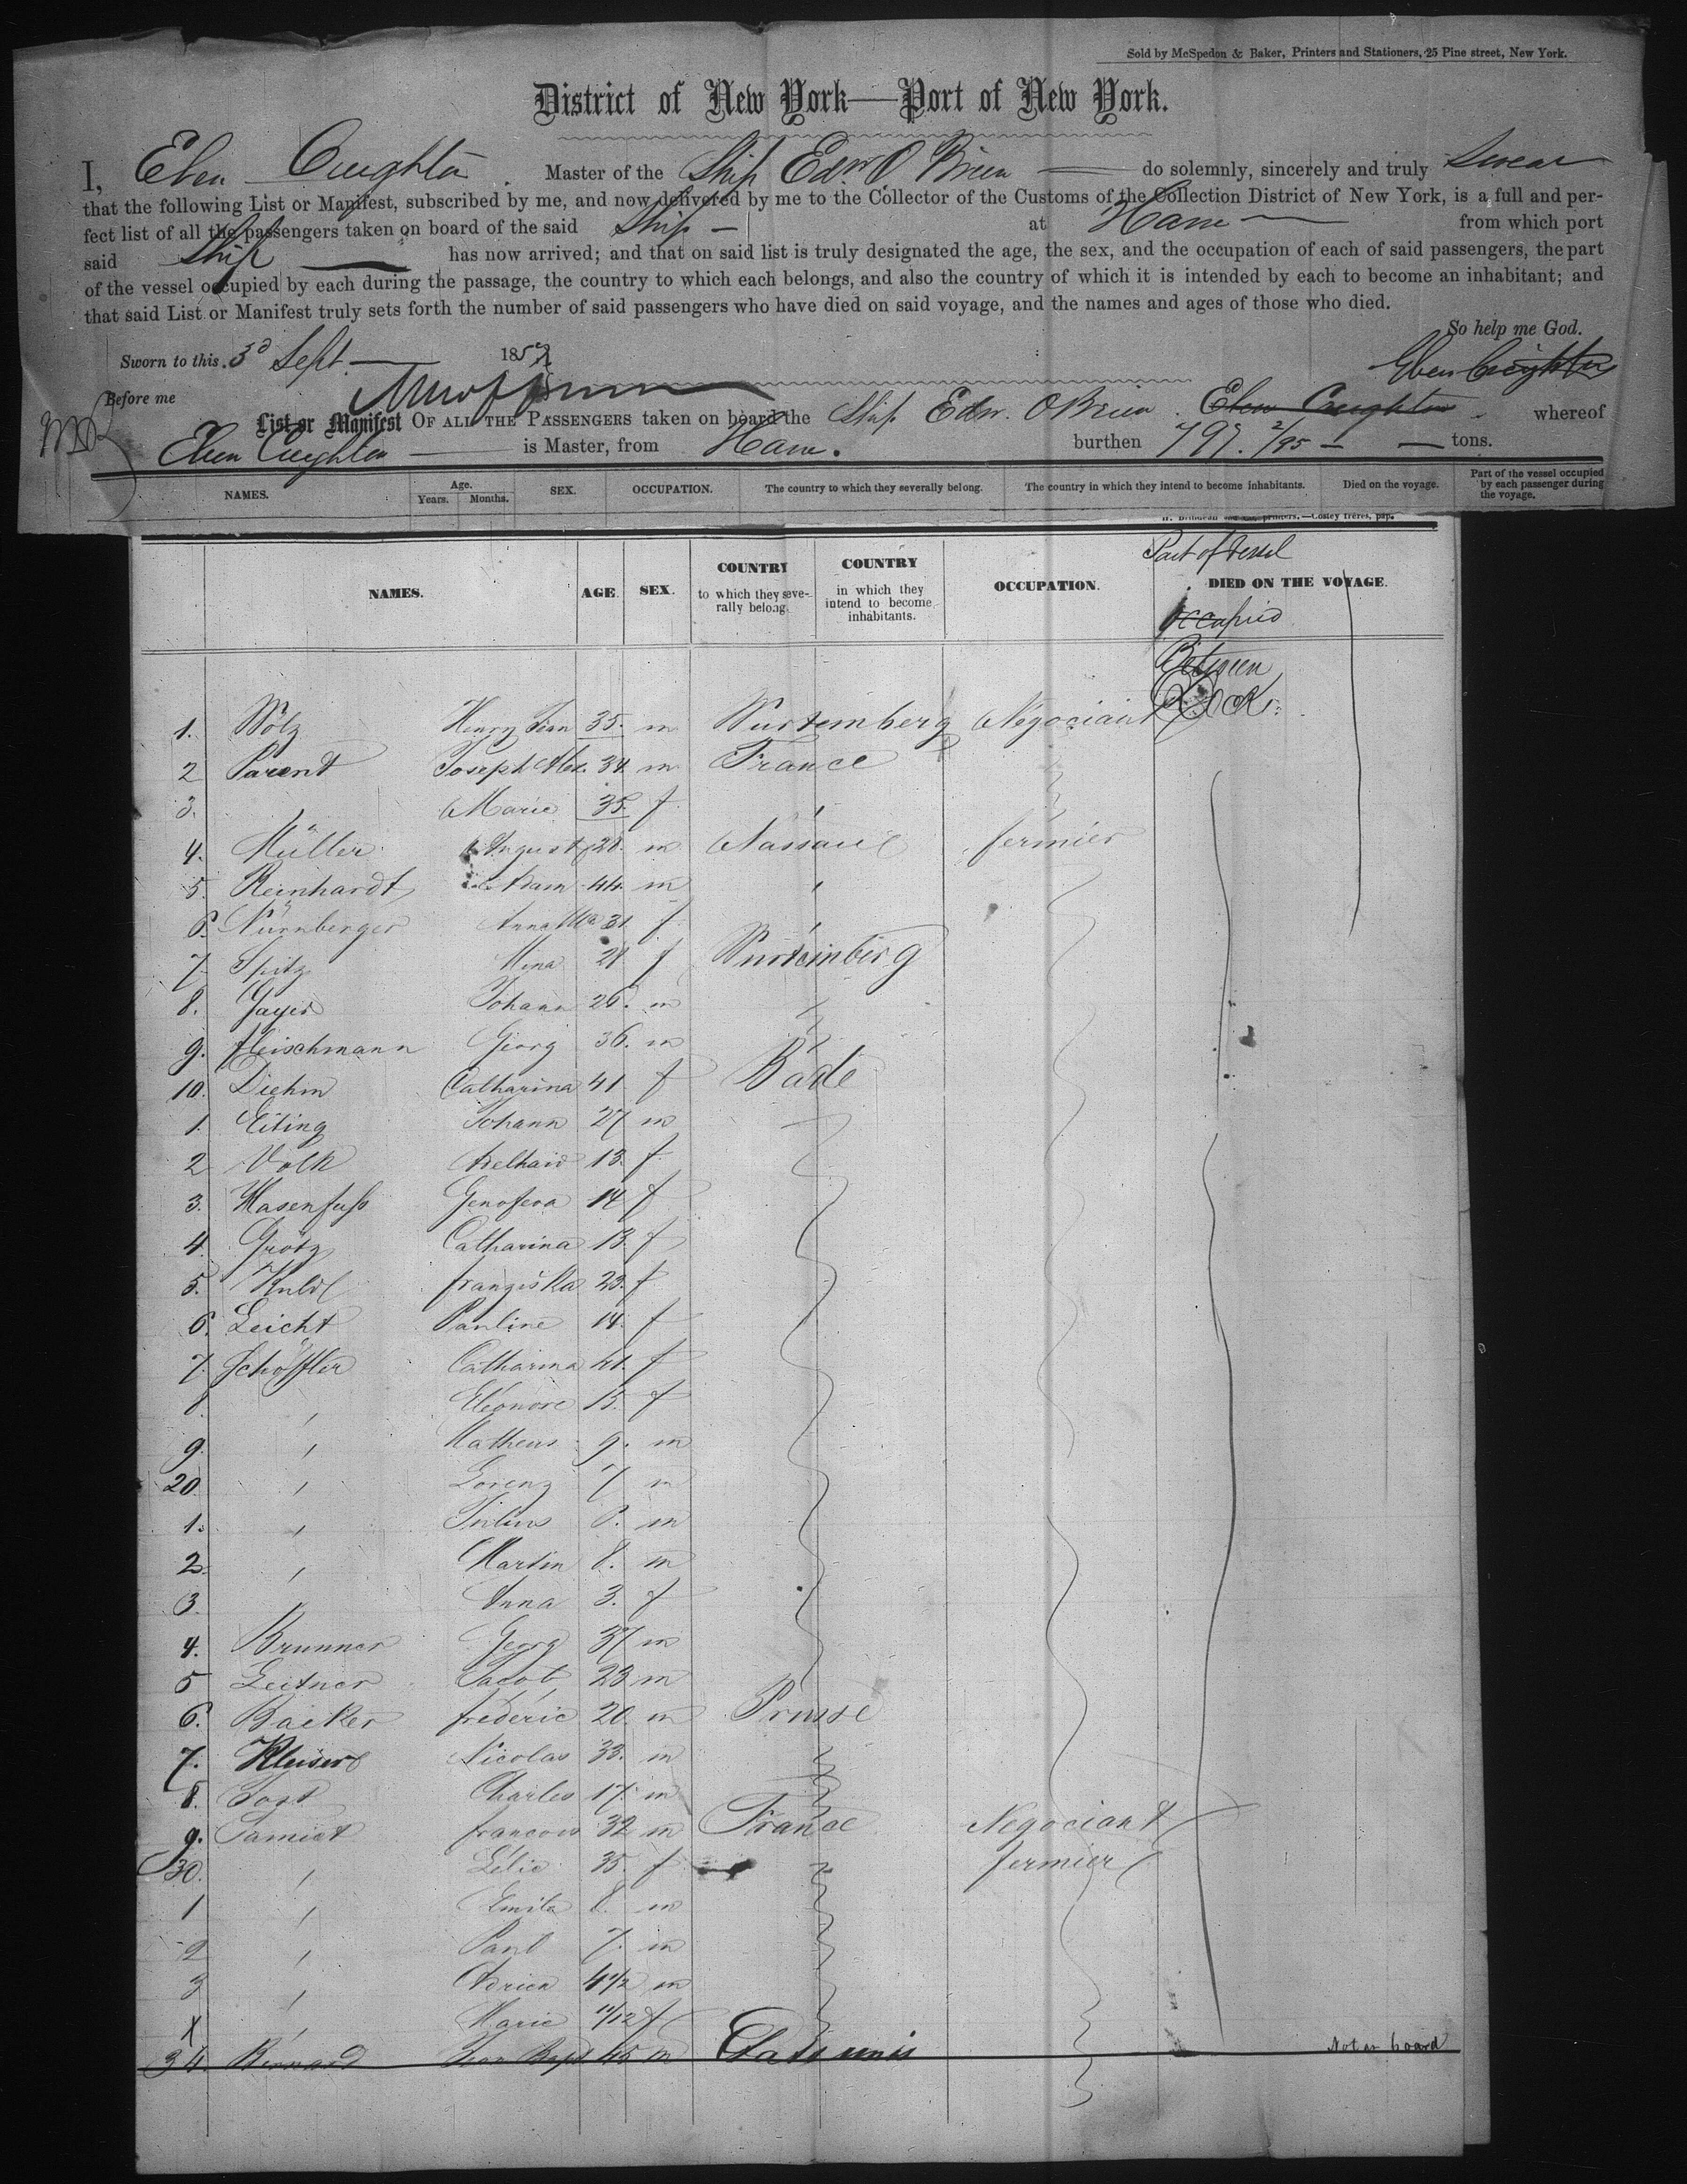 Sold by McSpedon & Baker, Printers and Stationers, 25 Pine street, New York.
District of New York—Port of New York.
I, Eben Creighton . Master of the Ship Edwd. O. Brien — do solemnly, sincerely and truly Swear
that the following List or Manifest, subscribed by me, and now delivered by me to the Collector of the Customs of the Collection District of New York, is a full and per-
fect list of all the passengers taken on board of the said Ship — at Havre — from which port
said Ship — has now arrived; and that on said list is truly designated the age, the sex, and the occupation of each of said passengers, the part
of the vessel occupied by each during the passage, the country to which each belongs, and also the country of which it is intended by each to become an inhabitant; and
that said List or Manifest truly sets forth the number of said passengers who have died on said voyage, and the names and ages of those who died.
So help me God.
Sworn to this 3d Sept. — 185
Eben Creighton
Before me
List or Manifest OF ALL THE PASSENGERS taken on board the Ship Edw. OBrien . Eben Creighton . whereof
Eben Creighton — is Master, from Havre. burthen 797. 2/95 — tons.
NAMES. Age. Years. Months. SEX. OCCUPATION. The country to which they severally belong. The country in which they intend to become inhabitants. Died on the voyage. Part of the vessel occupied by each passenger during the voyage.
printers.—Cosley frères, pap.
NAMES. AGE. SEX. COUNTRY to which they seve-rally belong. COUNTRY in which they intend to become inhabitants. OCCUPATION. DIED ON THE VOYAGE.
Part of Vessel
occupied
Between
Deck
1. Wolz Henry Jean 35. m Wurtemberg Négociant
2 Parent Joseph Alex. 34 m France
3. Marie 35 f
4. Müller August 28. m Nassau fermier
5 Reinhardt Adam 44. m
6. Nürnberger Anna Ma 31. f
7 Spitz Mina 21 f Wurtemberg
8. Johann 26. m
9. fleischmann Georg 36. m
10. Diehm Catharina 41 f Bade
1. Eiting Johann 27 m
2 Volk Adelhaid 13. f
3. Hasenfuss Genofeva 14 f
4. Grötz Catharina 13. f
5. franziska 23. f
6. Leicht Pauline 14. f
7. Schöffler Catharina 41. f
8. Eléonore 15. f
9. Matheus 9. m
20. Lorenz 7 m
1. Julius m
2. Martin 8. m
3. Anna 3. f
4. Brunner Georg 37 m
5 Leitner Jacob 23 m
6. Backer fréderic 20. m Prusse
7. Nicolas 33. m
8. Jost Charles 17. m
9. francois 32 m France Négociant
30. 35. f fermier
1 8. m
2 Paul 7. m
3 Adrien 4 1/2 m
X Marie 11/12 f
34. Bernard Jean Bapt 45 m Etats unis Not on board